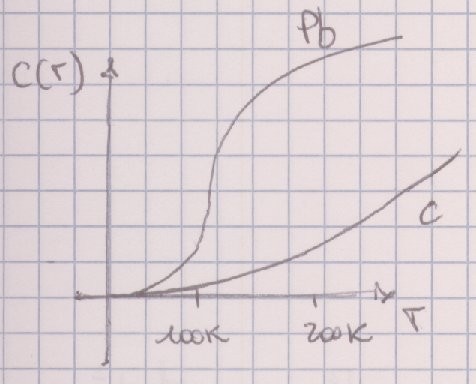 Pb
C(T)
C
100K
200K
T